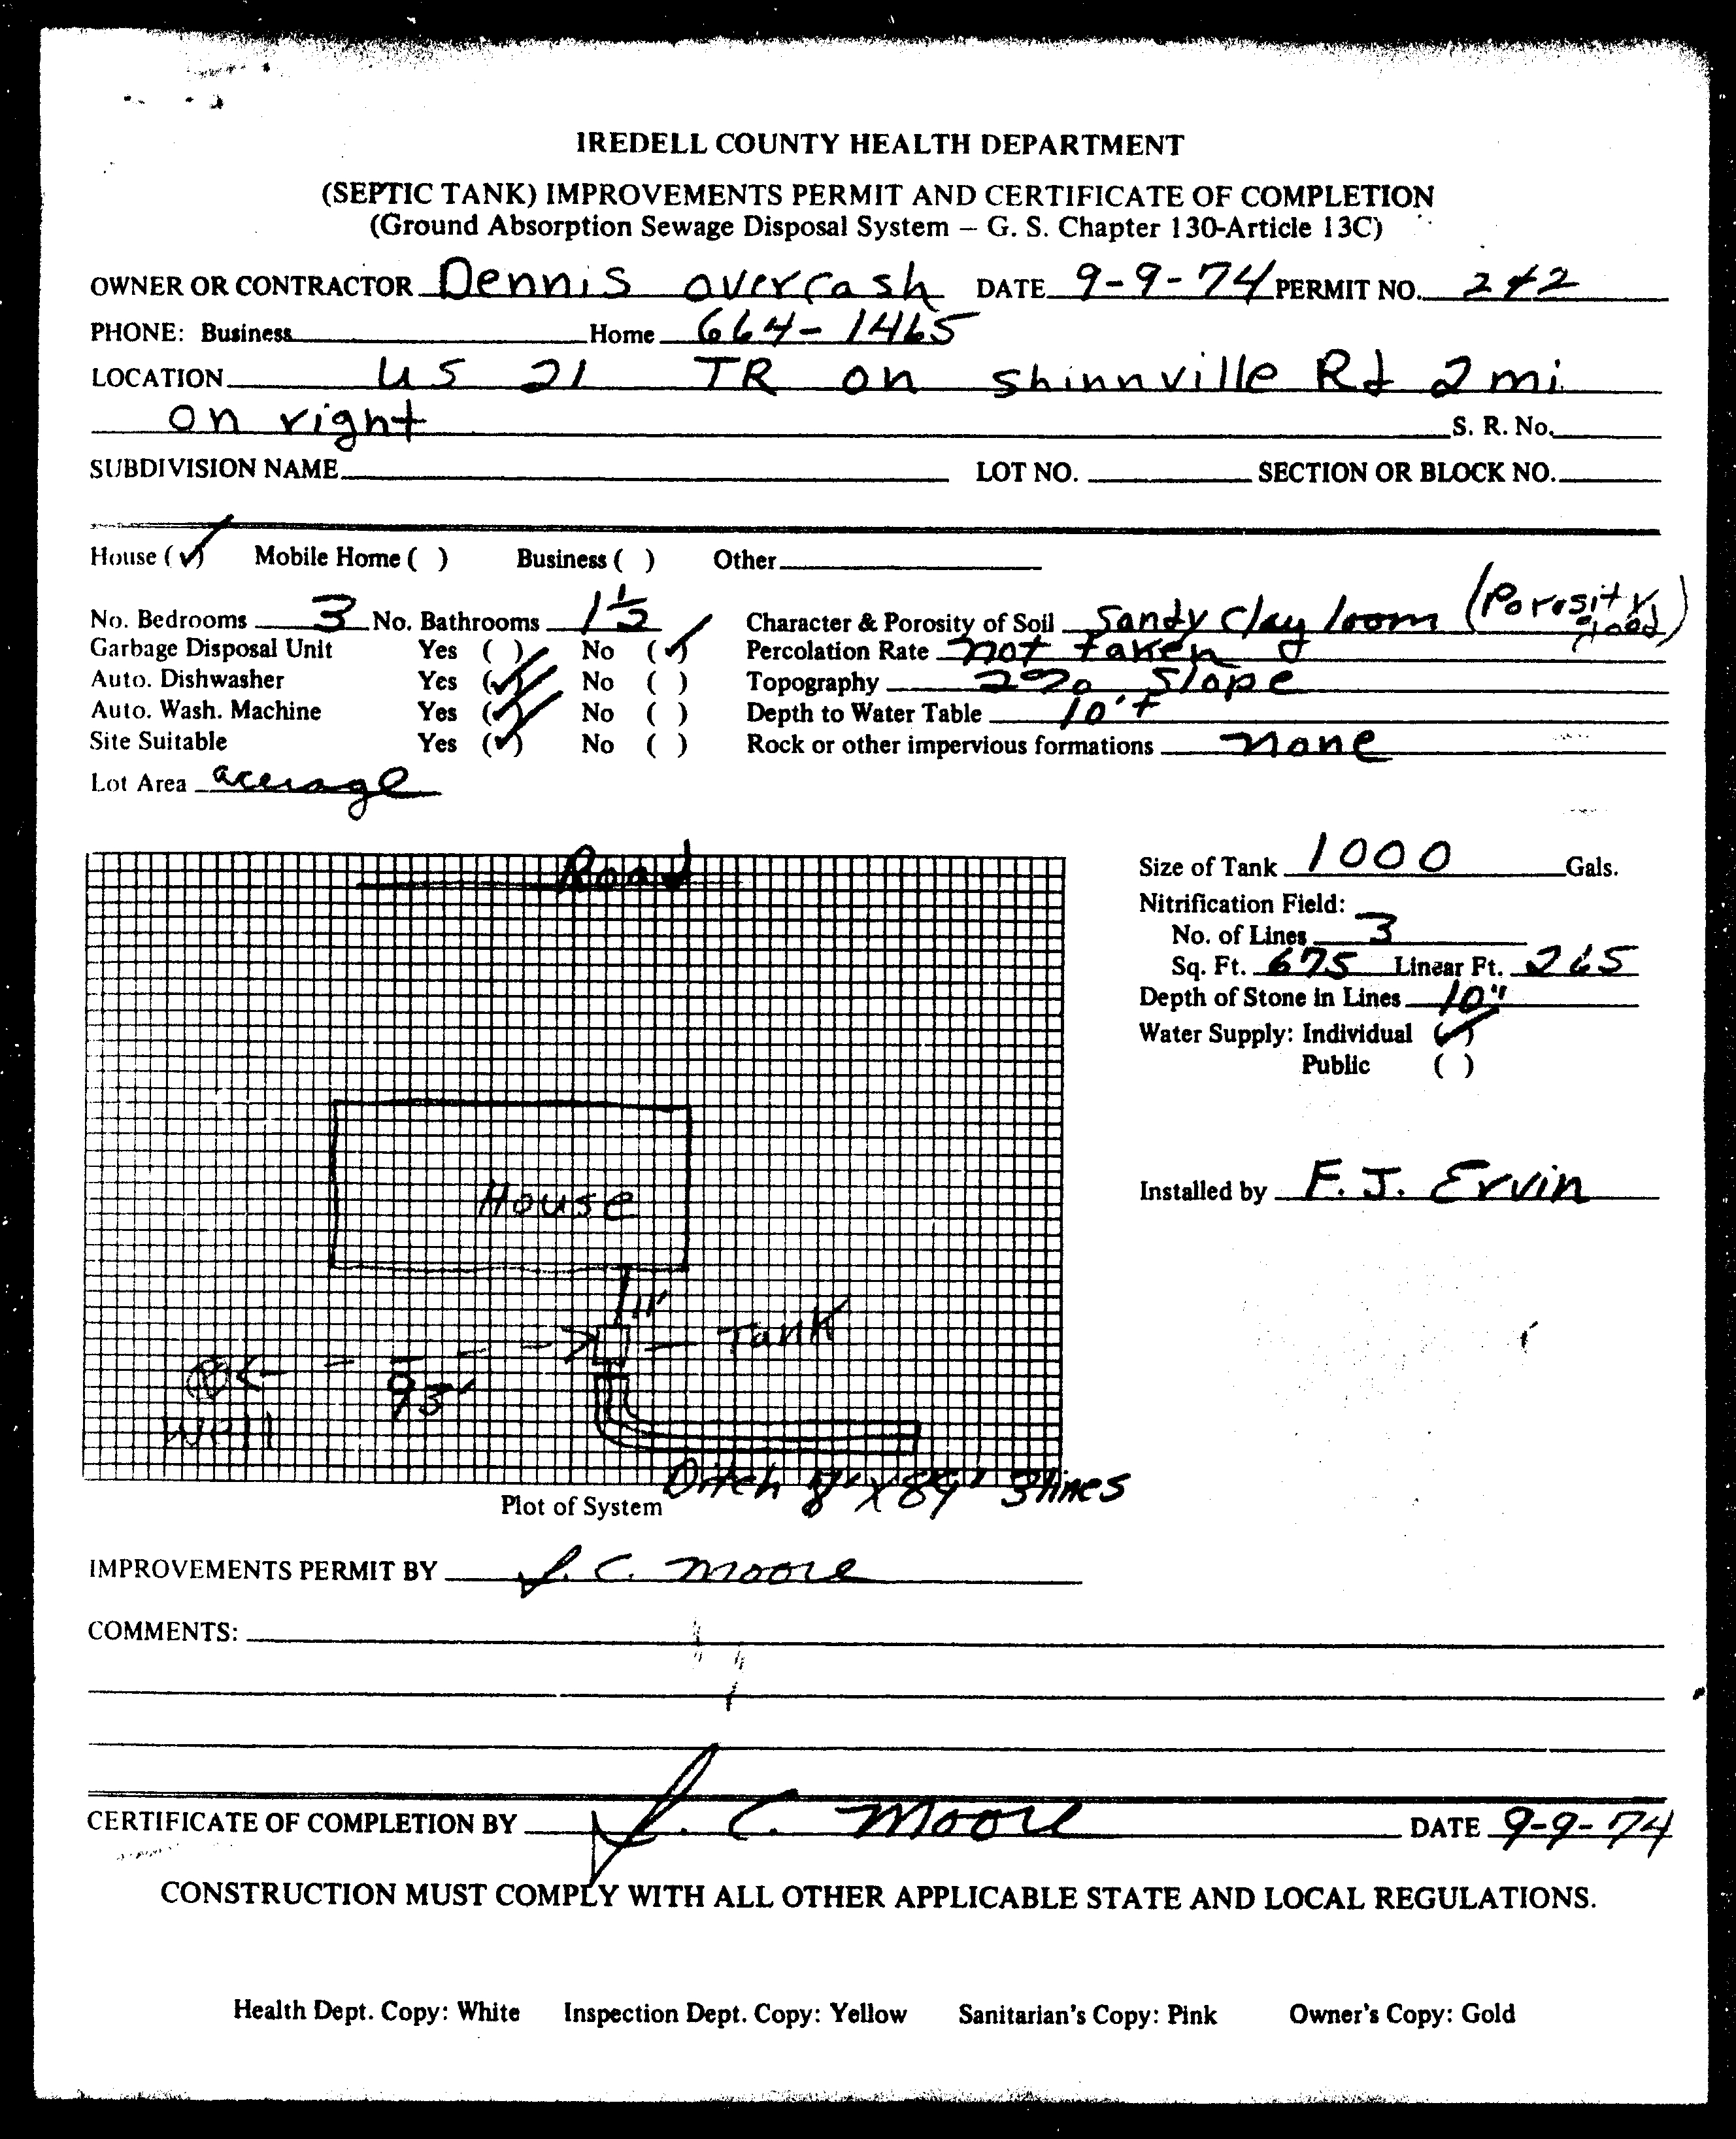 IREDELL COUNTY HEALTH DEPARTMENT
(SEPTIC TANK) IMPROVEMENTS PERMIT AND CERTIFICATE OF COMPLETION
(Ground Absorption Sewage Disposal System – G. S. Chapter 130-Article 13C)
OWNER OR CONTRACTOR Dennis overcash DATE 9-9-74 PERMIT NO. 242
PHONE: Business Home 664-1465
LOCATION US 21 TR on shinnville Rd 2 mi
on right S. R. No.
SUBDIVISION NAME LOT NO. SECTION OR BLOCK NO.
House (✓) Mobile Home ( ) Business ( ) Other
No. Bedrooms 3 No. Bathrooms 1 1/2 Character & Porosity of Soil Sandy Clay loom (Porosity good)
Garbage Disposal Unit Yes ( ) No (✓) Percolation Rate not taken
Auto. Dishwasher Yes (✓) No ( ) Topography 2% Slope
Auto. Wash. Machine Yes (✓) No ( ) Depth to Water Table 10'+
Site Suitable Yes (✓) No ( ) Rock or other impervious formations none
Lot Area acerage
Road
Size of Tank 1000 Gals.
Nitrification Field:
No. of Lines 3
Sq. Ft. 675 Linear Ft. 265
Depth of Stone in Lines 10"
Water Supply: Individual (✓)
Public ( )
House
Installed by F. J. Ervin
11'
Tank
95'
Well
Ditch 8' X 89' 3 lines
Plot of System
IMPROVEMENTS PERMIT BY J. C. Moore
COMMENTS:
CERTIFICATE OF COMPLETION BY J. C. Moore DATE 9-9-74
CONSTRUCTION MUST COMPLY WITH ALL OTHER APPLICABLE STATE AND LOCAL REGULATIONS.
Health Dept. Copy: White Inspection Dept. Copy: Yellow Sanitarian's Copy: Pink Owner's Copy: Gold